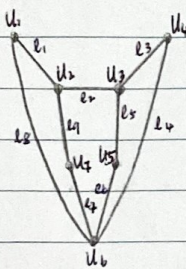 u₁ u₄
e₁ u₂ u₃ e₃
e₂
e₈ e₉ e₅ e₄
u₇ u₅
e₇ e₆
u₆